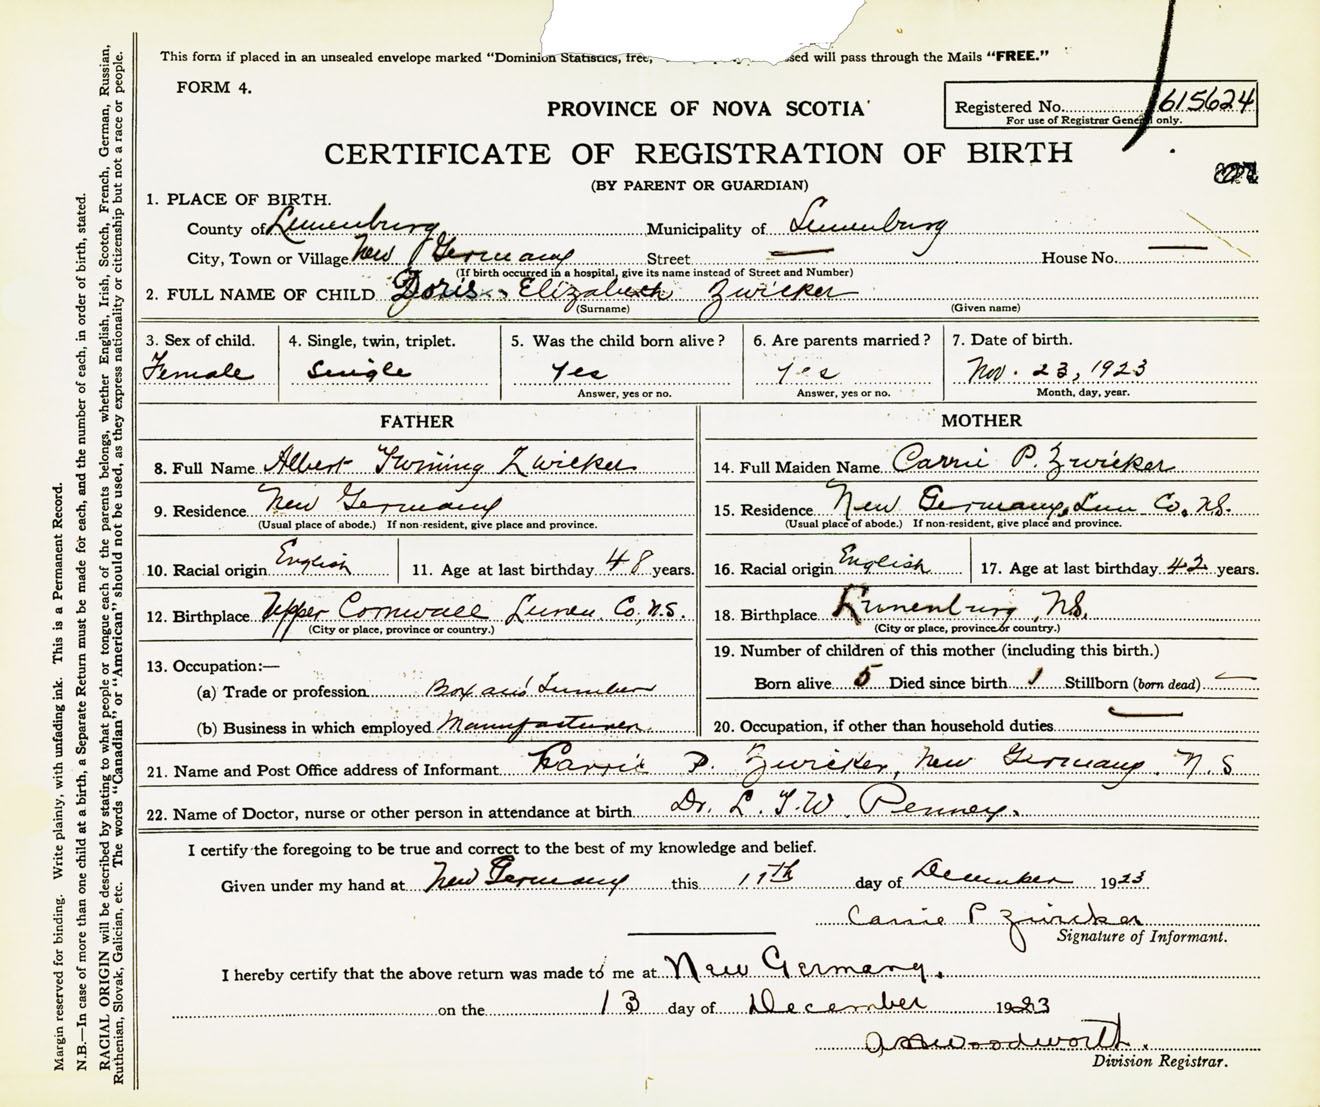 This form if placed in an unsealed envelope marked "Dominion Statistics, free, sed will pass through the Mails "FREE."
FORM 4.
PROVINCE OF NOVA SCOTIA
Registered No. 615624
For use of Registrar General only.
CERTIFICATE OF REGISTRATION OF BIRTH
(BY PARENT OR GUARDIAN)
1. PLACE OF BIRTH.
County of Lunenburg Municipality of Lunenburg
City, Town or Village New Germany Street — House No. —
(If birth occurred in a hospital, give its name instead of Street and Number)
2. FULL NAME OF CHILD Doris Elizabeth Zwicker
(Surname) (Given name)
3. Sex of child. 4. Single, twin, triplet. 5. Was the child born alive? 6. Are parents married? 7. Date of birth.
Female Single Yes Yes Nov. 23, 1923
Answer, yes or no. Answer, yes or no. Month, day, year.
FATHER MOTHER
8. Full Name Albert Twining Zwicker 14. Full Maiden Name Carrie P. Zwicker
9. Residence New Germany 15. Residence New Germany, Lun Co. N.S.
(Usual place of abode.) If non-resident, give place and province. (Usual place of abode.) If non-resident, give place and province.
10. Racial origin English 11. Age at last birthday 48 years. 16. Racial origin English 17. Age at last birthday 42 years.
12. Birthplace Upper Cornwall Lunen. Co. N.S. 18. Birthplace Lunenburg, N.S.
(City or place, province or country.) (City or place, province or country.)
13. Occupation:— 19. Number of children of this mother (including this birth.)
(a) Trade or profession Box and Lumber Born alive 5 Died since birth 1 Stillborn (born dead) —
(b) Business in which employed Manufacturer. 20. Occupation, if other than household duties —
21. Name and Post Office address of Informant Carrie P. Zwicker, New Germany. N.S
22. Name of Doctor, nurse or other person in attendance at birth Dr. L. T. W. Penney.
I certify the foregoing to be true and correct to the best of my knowledge and belief.
Given under my hand at New Germany this 11th day of December 1923
Carrie P Zwicker
Signature of Informant.
I hereby certify that the above return was made to me at New Germany.
on the 13 day of December 1923
Woodworth.
Division Registrar.
Margin reserved for binding. Write plainly, with unfading ink. This is a Permanent Record.
N.B.—In case of more than one child at a birth, a Separate Return must be made for each, and the number of each, in order of birth, stated.
RACIAL ORIGIN will be described by stating to what people or tongue each of the parents belongs, whether English, Irish, Scotch, French, German, Russian,
Ruthenian, Slovak, Galician, etc. The words "Canadian" or "American" should not be used, as they express nationality or citizenship but not a race or people.